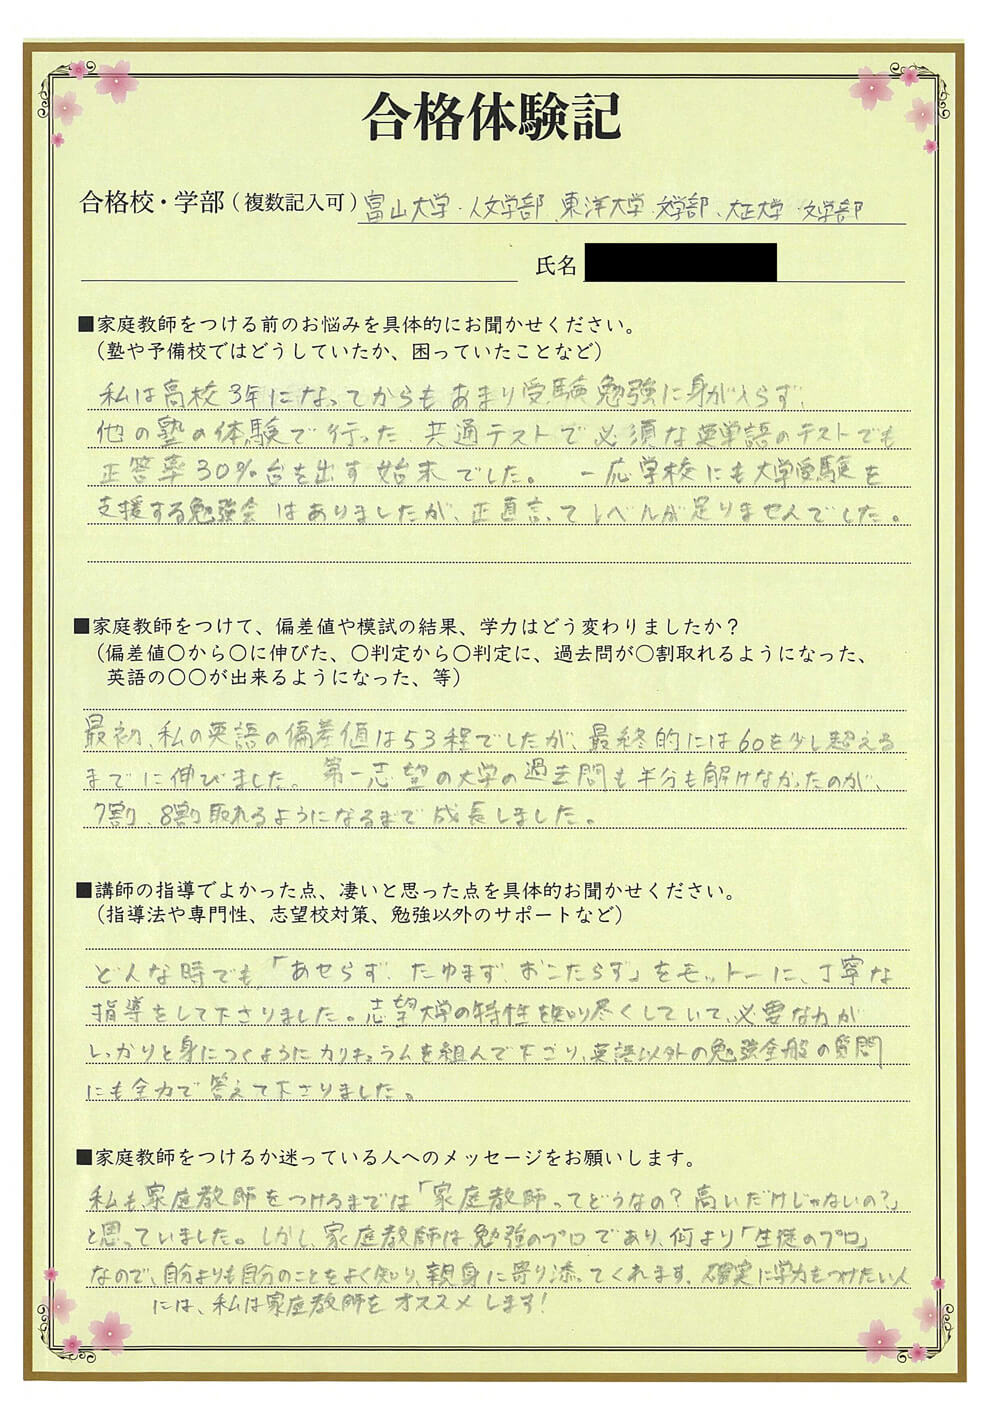 合格体験記
合格校・学部(複数記入可) 富山大学・人文学部、東洋大学・文学部、大正大学・文学部
氏名
■家庭教師をつける前のお悩みを具体的にお聞かせください。
(塾や予備校ではどうしていたか、困っていたことなど)
私は高校3年になってからもあまり受験勉強に身が入らず、
他の塾の体験で行った、共通テストで必須な英単語のテストでも
正答率30%台を出す始末でした。 一応学校にも大学受験を
支援する勉強会はありましたが、正直言ってレベルが足りませんでした。
■家庭教師をつけて、偏差値や模試の結果、学力はどう変わりましたか？
(偏差値〇から〇に伸びた、〇判定から〇判定に、過去問が〇割取れるようになった、
英語の〇〇が出来るようになった、等)
最初、私の英語の偏差値は53程でしたが、最終的には60を少し超える
までに伸びました。第一志望の大学の過去問も半分も解けなかったのが、
7割、8割取れるようになるまで成長しました。
■講師の指導でよかった点、凄いと思った点を具体的お聞かせください。
(指導法や専門性、志望校対策、勉強以外のサポートなど)
どんな時でも、「あせらず、たゆまず、おこたらず」をモットーに、丁寧な
指導をして下さりました。志望大学の特性を知り尽くしていて、必要な力が
しっかりと身につくようにカリキュラムを組んで下さり、英語以外の勉強全般の質問
にも全力で答えて下さりました。
■家庭教師をつけるか迷っている人へのメッセージをお願いします。
私も、家庭教師をつけるまでは「家庭教師ってどうなの？高いだけじゃないの？」
と思っていました。しかし、家庭教師は勉強のプロであり、何より「生徒のプロ」
なので、自分よりも自分のことをよく知り、親身に寄り添ってくれます。確実に学力をつけたい人
には、私は家庭教師をオススメします！